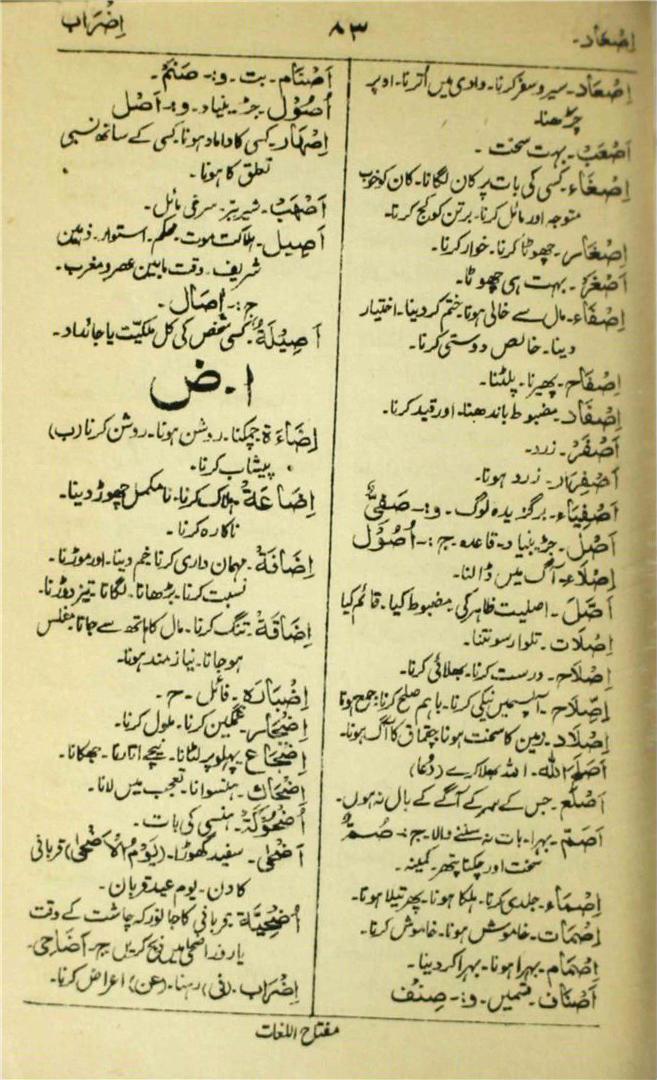 اِصْعاد۔
۸۳
اِضْرَاب
اِصْعَاد۔ سیر و سفر کرنا۔ وادی میں اُترنا۔ اوپر
چڑھنا۔
اَصْعَبْ۔ بہت سخت۔
اِصْغَاء۔ کسی کی بات پر کان لگانا۔ کان کو خوب
متوجہ اور مائل کرنا۔ برتن کو کج کرنا۔
اِصْغَار۔ چھوٹا کرنا۔ خوار کرنا۔
اَصْغَرْ۔ بہت ہی چھوٹا۔
اِصْفَاء۔ مال سے خالی ہونا۔ ختم کر دینا۔ اختیار
دینا۔ خالص دوستی کرنا۔
اِصْفَاح۔ پھیرنا۔ پلٹنا۔
اِصْفَاد۔ مضبوط باندھنا۔ اور قید کرنا۔
اَصْفَرْ۔ زرد۔
اِصْفِرَار۔ زرد ہونا۔
اَصْفِیَاء۔ برگزیدہ لوگ۔ و:۔ صَفِیٌّ
اَصْل۔ جڑ۔ بنیاد۔ قاعدہ۔ ج:۔ اُصُوْل
اِصْلَاء۔ آگ میں ڈالنا۔
اَصَّلَ۔ اصلیت ظاہر کی۔ مضبوط کیا۔ قائم کیا
اِصْلَات۔ تلوار سونتنا۔
اِصْلَاح۔ درست کرنا۔ بھلائی کرنا۔
اِصِّلَاح۔ آپسمیں نیکی کرنا۔ باہم صلح کرنا۔ جمع ہونا
اِصْلَاد۔ زمین کا سخت ہونا۔ چقماق کا آگ ہونا۔
اَصْلَحَ اللہ۔ اللہ بھلا کرے (دُعا)
اَصْلَع۔ جس کے سر کے آگے کے بال نہ ہوں۔
اَصَمّ۔ بہرا۔ بات نہ سننے والا۔ ج:۔ صُمٌّ
سخت اور چکنا پتھر۔ کمینہ۔
اِصْمَاء۔ جلدی کرنا۔ ہلکا ہونا۔ پھرتیلا ہونا۔
اِصْمَات۔ خاموش ہونا۔ خاموش کرنا۔
اِصْمَام۔ بہرا ہونا۔ بہرا کر دینا۔
اَصْنَاف۔ قسمیں۔ و:۔ صِنْف
اَصْنَام۔ بت۔ و:۔ صَنَمْ۔
اُصُوْل۔ جڑ۔ بنیاد۔ و:۔ اَصْل
اِصْہَار۔ کسی کا داماد ہونا۔ کسی کے ساتھ نسبی
تعلق کا ہونا۔
اَصْہَبْ۔ شیر ببر۔ سرخی مائل۔
اَصِیل۔ ہلاکت۔ موت۔ محکم۔ استوار۔ ذہین
شریف۔ وقت مابین عصر و مغرب۔
ج:۔ اِصَال۔
اَصِیْلَةْ۔ کسی شخص کی کل ملکیّت یا جائداد۔
ا۔ ض
اِضَاءَة۔ چمکنا۔ روشن ہونا۔ روشن کرنا (ب)
پیشاب کرنا۔
اِضَاعَةْ۔ ہلاک کرنا۔ نامکمل چھوڑ دینا۔
ناکارہ کرنا۔
اِضَافَةْ۔ مہمان داری کرنا۔ خم دینا۔ اور موڑنا۔
نسبت کرنا۔ بڑھانا۔ لگانا۔ تیز دوڑنا۔
اِضَاقَةْ۔ تنگ کرنا۔ مال کا ہاتھ سے جانا۔ مفلس
ہو جانا۔ نیاز مند ہونا۔
اِضْبَارَہ۔ فائل۔ ح۔
اِضْجَار۔ غمگین کرنا۔ ملول کرنا۔
اِضْجَاع۔ پہلو پر لٹانا۔ نیچے اتارنا۔ جھکانا۔
اِضْحَاك۔ ہنسوانا۔ تعجب میں لانا۔
اُضْحُوْکَةْ۔ ہنسی کی بات۔
اَضْحٰی۔ سفید گھوڑا۔ (یَوْمُ الْاَضْحٰی) قربانی
کا دن۔ یوم عید قربان۔
اُضْحِیَّةْ۔ قربانی کا جانور کہ چاشت کے وقت
یا روز اضحٰی میں ذبح کریں ج۔ اَضَاحِی۔
اِضْرَاب۔ (فی) رہنا۔ (عن) اعراض کرنا۔
مفتاح اللغات